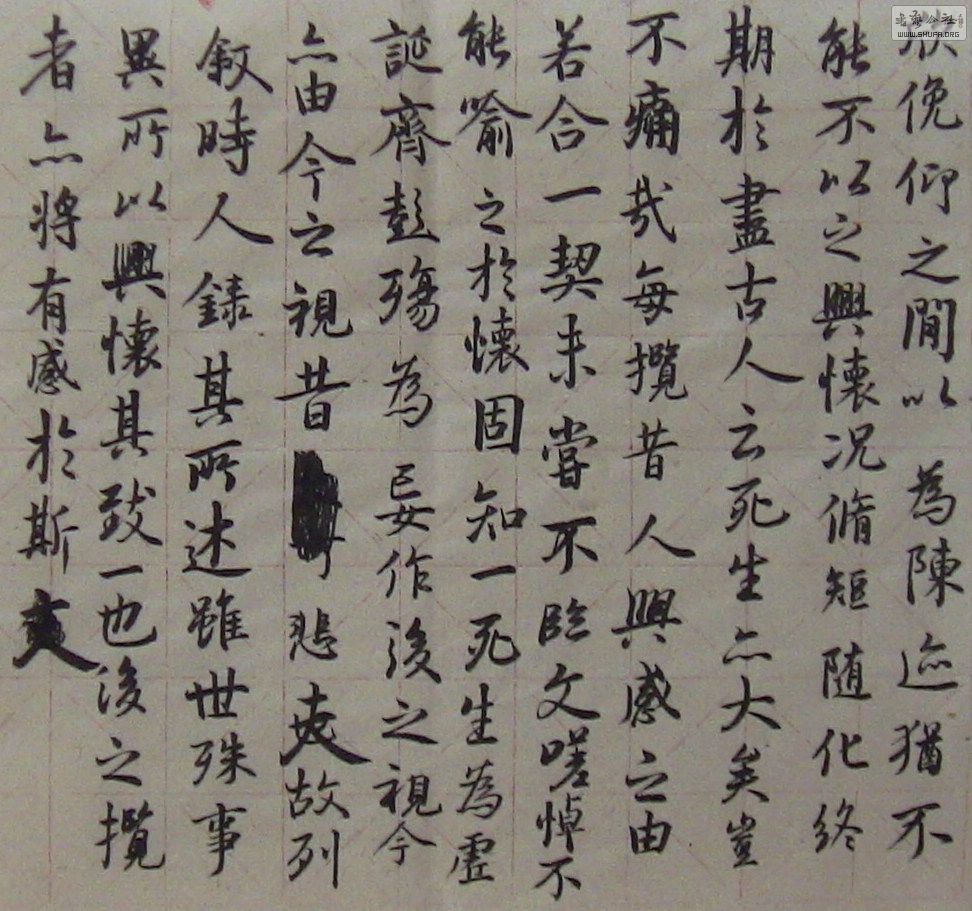 欣俛仰之閒以為陳迹猶不
能不以之興懷況脩短随化終
期於盡古人云死生亦大矣豈
不痛哉每攬昔人興感之由
若合一契未嘗不臨文嗟悼不
能喻之於懷固知一死生為虛
誕齊彭殤為妄作後之視今
亦由今之視昔悲夫故列
叙時人錄其所述雖世殊事
異所以興懷其致一也後之攬
者亦將有感於斯文
WWW.SHUFA.ORG